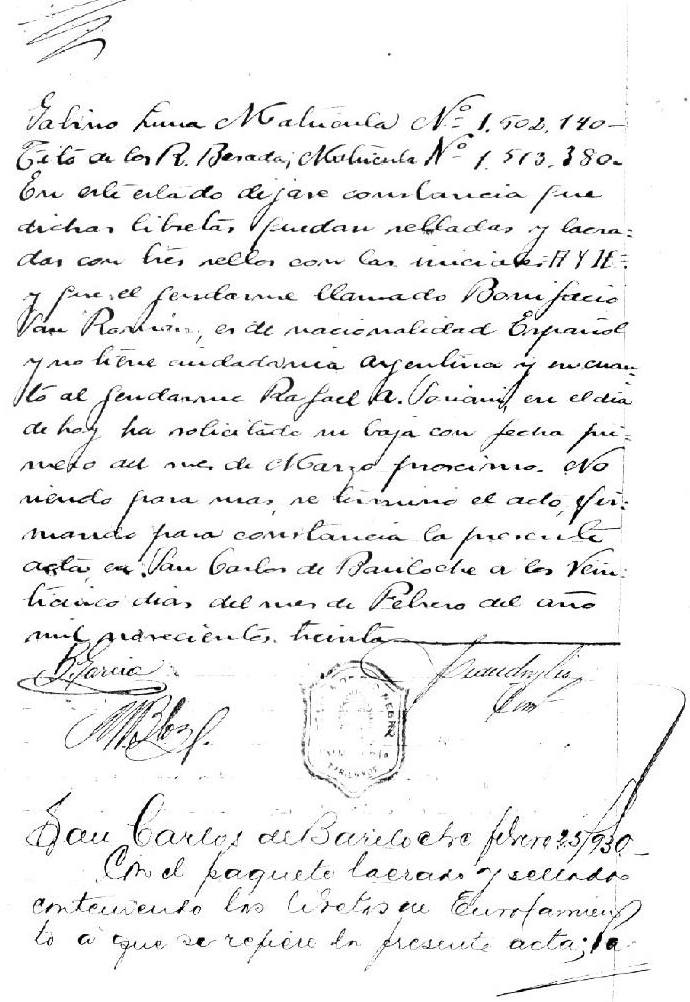 Galino Luna Matricula Nº 1.502.140-
Tito de los R. Besada; Matricula Nº 1.513.380-
En este estado dejase constancia que
dichas libretas quedan selladas y lacra=
das con tres sellos con las iniciales
y que el gendarme llamado Bonifacio
San Román, es de nacionalidad Español
y no tiene ciudadania argentina y en cuan=
to al gendarme Rafael A. en el dia
de hoy ha solicitado su baja con fecha pri=
mero del mes de Marzo procsimo. No
siendo para mas, se termino el acto, fir=
mando para constancia la presente
acta, en San Carlos de Bariloche a los vein=
ticinco dias del mes de Febrero del año
mil novecientos treinta
B. Garcia
RIO NEGRO
San Carlos de Bariloche febrero 25/930-
Con el paquete lacrado y sellado
conteniendo las libretas de Enrolamien
to a que se refiere la presente acta; la